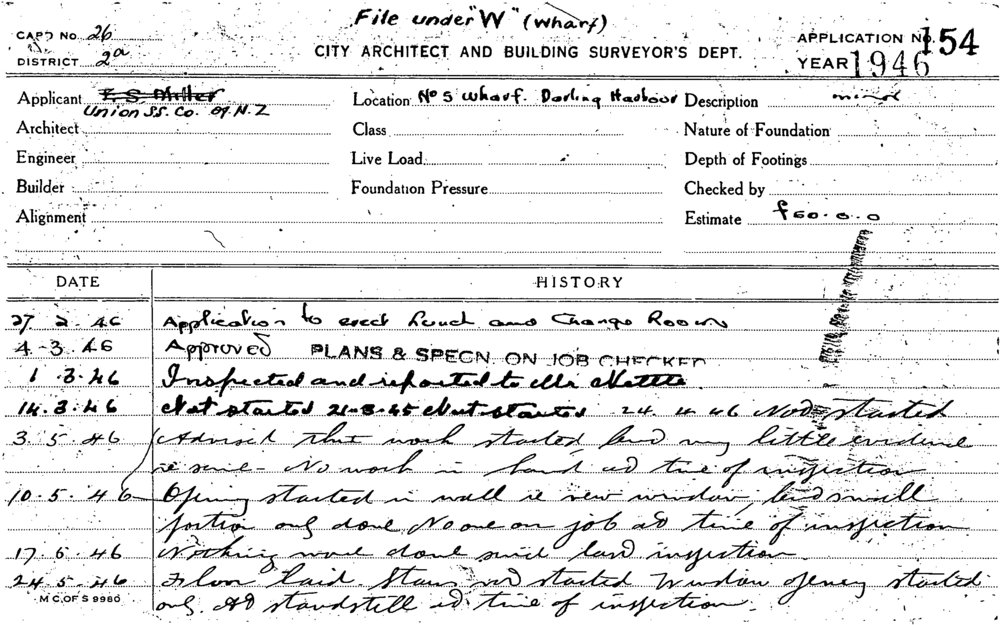 File under "W" (Wharf)
CARD No. 26
DISTRICT 2a
CITY ARCHITECT AND BUILDING SURVEYOR'S DEPT.
APPLICATION No. 154
YEAR 1946
Applicant E. S. Miller
Union SS. Co. of N.Z
Location No 5 Wharf. Darling Harbour
Description minor
Architect
Class
Nature of Foundation
Engineer
Live Load
Depth of Footings
Builder
Foundation Pressure
Checked by
Alignment
Estimate £60.0.0
DATE
HISTORY
27 2 46 Application to erect Lunch and Change Room
4-3.46 Approved PLANS & SPECN. ON JOB CHECKED
1.3.46 Inspected and reported to Mr
14.3.46 Not started 21-3-45 Not started 24 4 46 Not started
3.5.46 Advised that work started, but very little evidence
re same - No work in hand at time of inspection
10.5.46 Opening started in wall re new window, but small
portion only done No one on job at time of inspection
17.5.46 Nothing more done since last inspection
24.5.46 Floor laid. Stairs not started Window opening started
only. At standstill at time of inspection.
M.C. OF S 9980